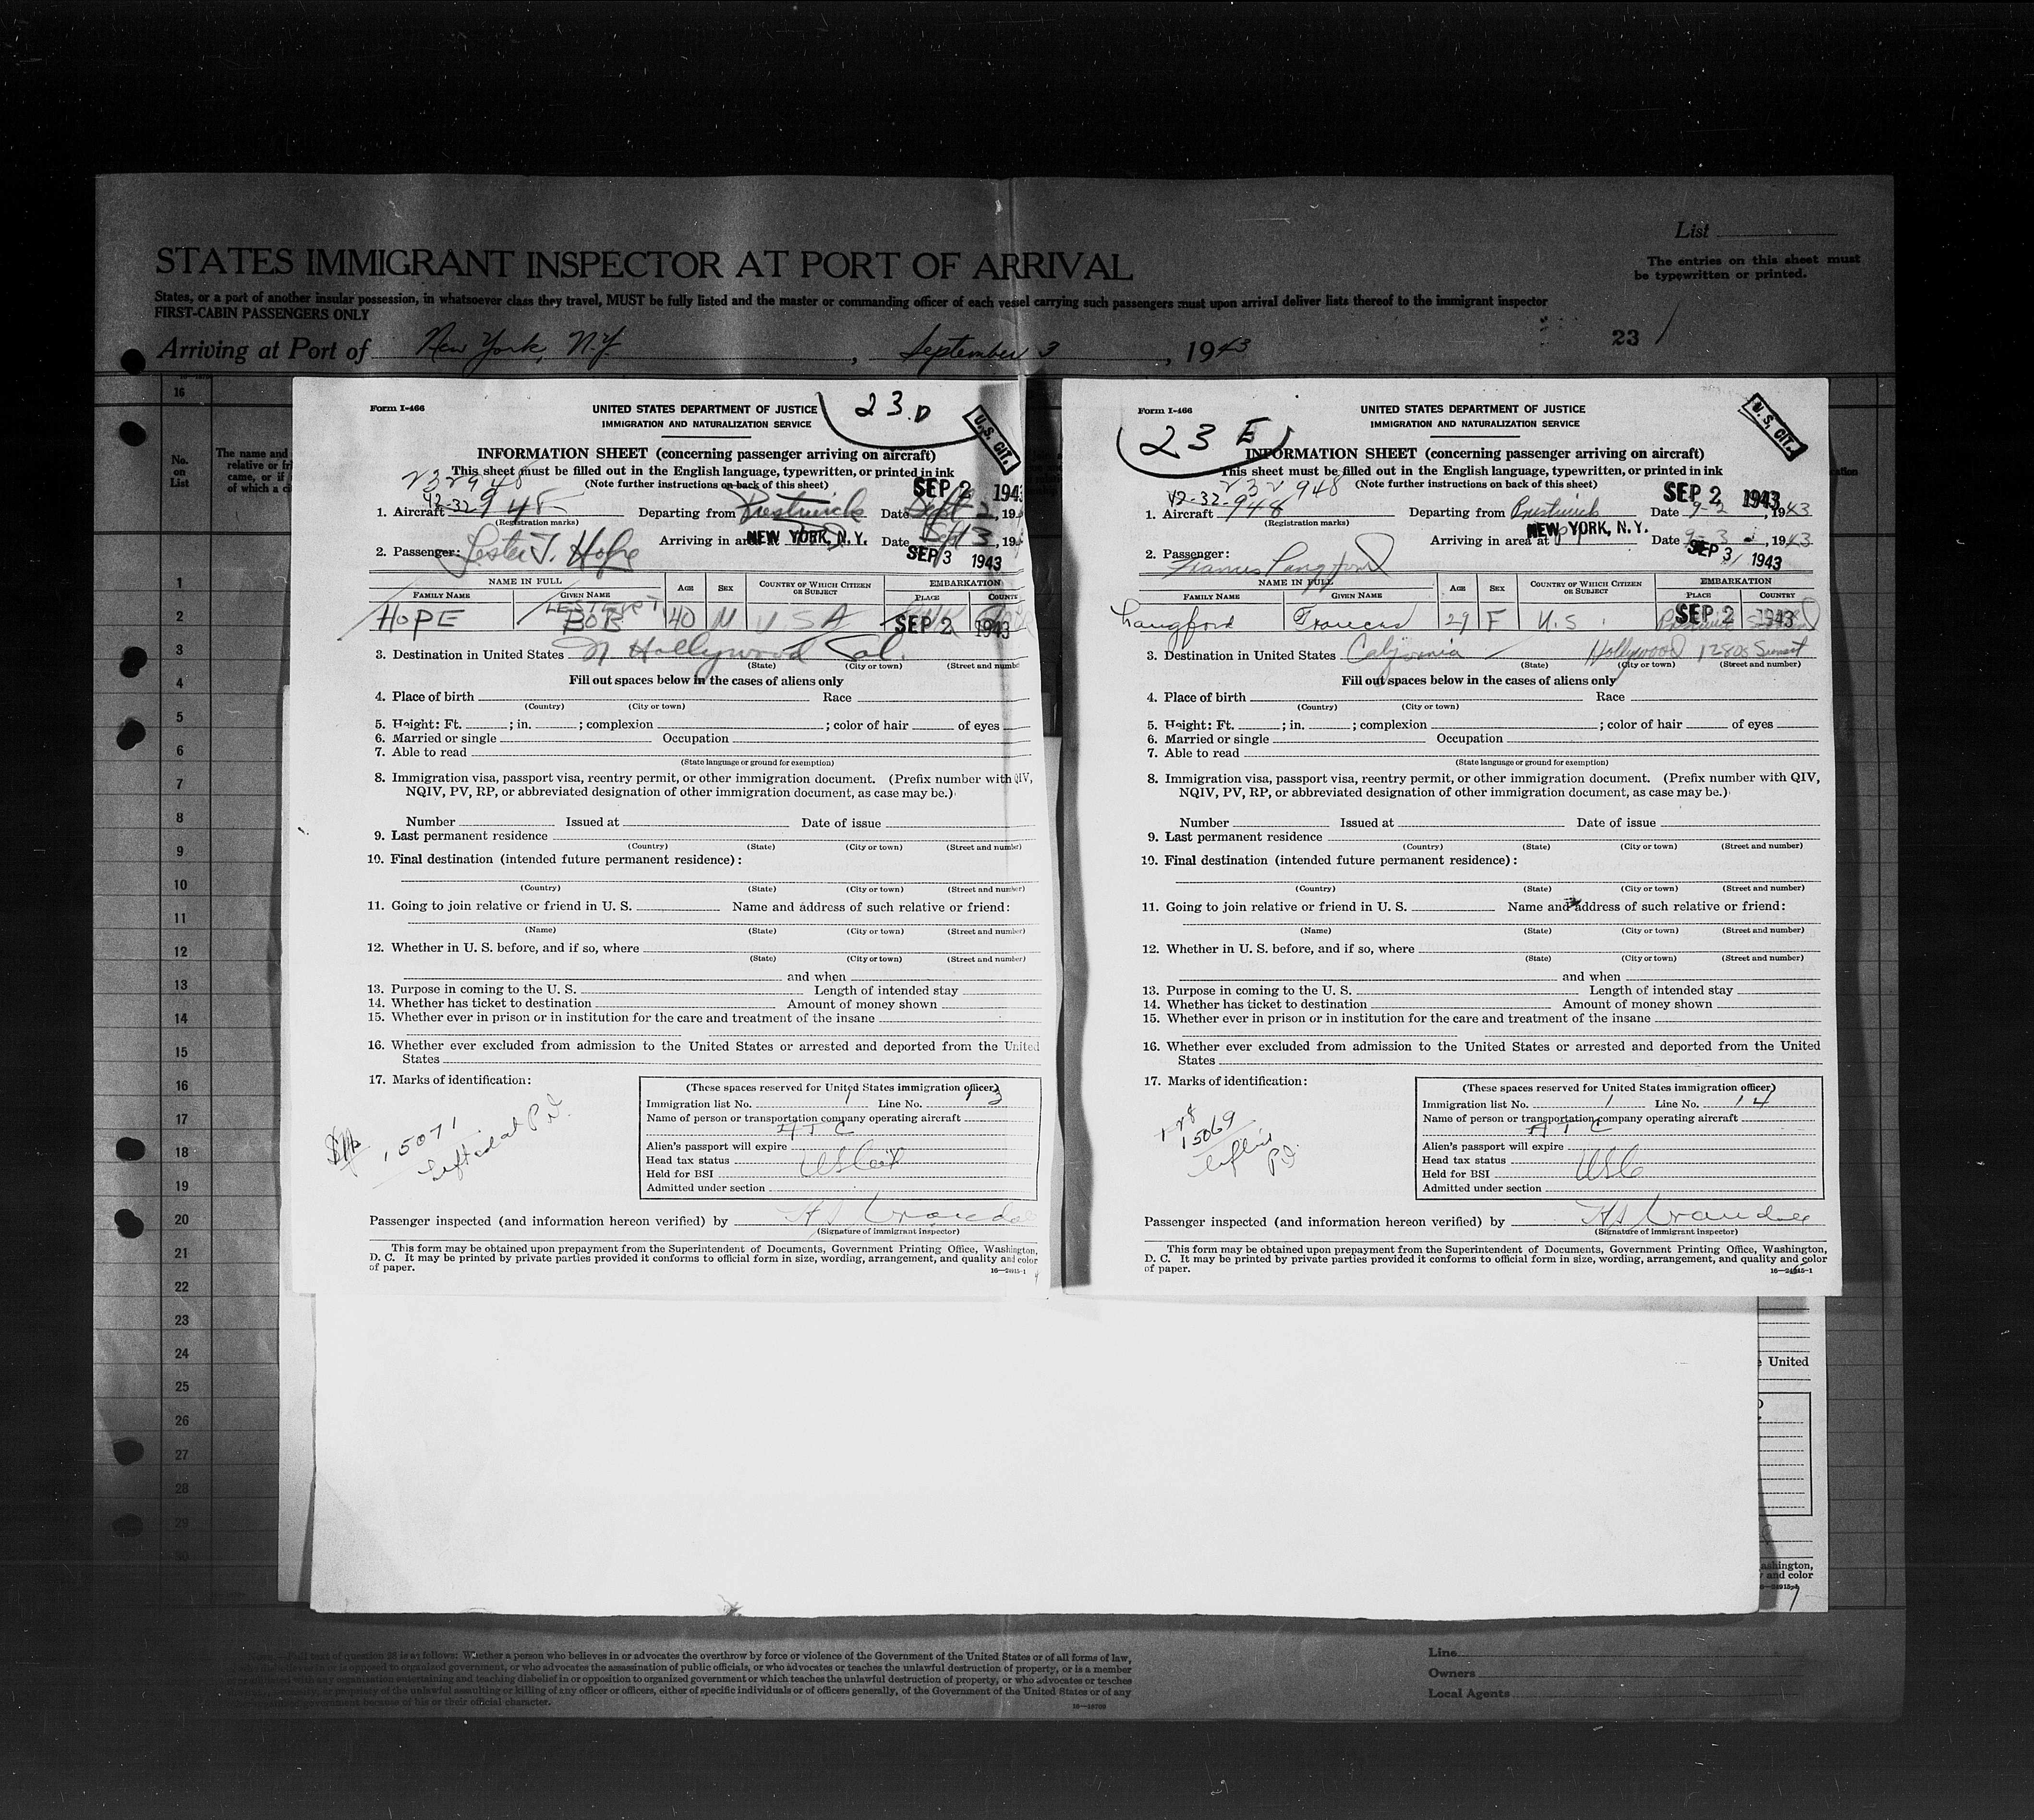 List
STATES IMMIGRANT INSPECTOR AT PORT OF ARRIVAL
The entries on this sheet must
be typewritten or printed.
States, or a port of another insular possession, in whatsoever class they travel, MUST be fully listed and the master or commanding officer of each vessel carrying such passengers must upon arrival deliver lists thereof to the immigrant inspector
FIRST-CABIN PASSENGERS ONLY
Arriving at Port of New York, N.Y. , September 3 , 1943
23 /
16
No.
on
List
The name and
relative or fri
came, or if
of which a ci
1
2
3
4
5
6
7
8
9
10
11
12
13
14
15
16
17
18
19
20
21
22
23
24
25
26
27
28
29
30
Form I-466
23 D
U.S. CIT.
UNITED STATES DEPARTMENT OF JUSTICE
IMMIGRATION AND NATURALIZATION SERVICE
INFORMATION SHEET (concerning passenger arriving on aircraft)
This sheet must be filled out in the English language, typewritten, or printed in ink
(Note further instructions on back of this sheet)
232948
SEP 2 1943
1. Aircraft 42-32-948 Departing from Prestwick Date Sept 2, 19
(Registration marks)
Arriving in area at NEW YORK, N.Y. Date Sept 3, 19
SEP 3 1943
2. Passenger: Lester T. Hope
NAME IN FULL
AGE
SEX
COUNTRY OF WHICH CITIZEN
OR SUBJECT
EMBARKATION
FAMILY NAME GIVEN NAME PLACE COUNTR
HOPE BOB 40 M U.S.A SEP 2 1943
3. Destination in United States N Hollywood Cal.
(State) (City or town) (Street and number
Fill out spaces below in the cases of aliens only
4. Place of birth Race
(Country) (City or town)
5. Height: Ft. ; in. ; complexion ; color of hair of eyes
6. Married or single Occupation
7. Able to read
(State language or ground for exemption)
8. Immigration visa, passport visa, reentry permit, or other immigration document. (Prefix number with QIV,
NQIV, PV, RP, or abbreviated designation of other immigration document, as case may be.)
Number Issued at Date of issue
9. Last permanent residence
(Country) (State) (City or town) (Street and number)
10. Final destination (intended future permanent residence):
(Country) (State) (City or town) (Street and number)
11. Going to join relative or friend in U. S. Name and address of such relative or friend:
(Name) (State) (City or town) (Street and number)
12. Whether in U. S. before, and if so, where
(State) (City or town) (Street and number)
and when
13. Purpose in coming to the U. S. Length of intended stay
14. Whether has ticket to destination Amount of money shown
15. Whether ever in prison or in institution for the care and treatment of the insane
16. Whether ever excluded from admission to the United States or arrested and deported from the United
States
17. Marks of identification:
15071
Lifted at P.I.
(These spaces reserved for United States immigration officer)
Immigration list No. 1 Line No. 13
Name of person or transportation company operating aircraft
ATC
Alien's passport will expire
Head tax status USCit
Held for BSI
Admitted under section
Passenger inspected (and information hereon verified) by
(Signature of immigrant inspector)
This form may be obtained upon prepayment from the Superintendent of Documents, Government Printing Office, Washington,
D. C. It may be printed by private parties provided it conforms to official form in size, wording, arrangement, and quality and color
of paper.
16—24915-1
Form I-466
23 E
U.S. CIT.
UNITED STATES DEPARTMENT OF JUSTICE
IMMIGRATION AND NATURALIZATION SERVICE
INFORMATION SHEET (concerning passenger arriving on aircraft)
This sheet must be filled out in the English language, typewritten, or printed in ink
(Note further instructions on back of this sheet)
232948
SEP 2 1943
1. Aircraft 42-32-948 Departing from Prestwick Date 9-2, 1943
(Registration marks)
Arriving in area at NEW YORK, N.Y. Date 9-3, 1943
SEP 3 1943
2. Passenger: Frances Langford
NAME IN FULL
AGE
SEX
COUNTRY OF WHICH CITIZEN
OR SUBJECT
EMBARKATION
FAMILY NAME GIVEN NAME PLACE COUNTRY
Langford Frances 29 F U.S. SEP 2 1943
3. Destination in United States California Hollywood 12805 Sunset
(State) (City or town) (Street and number)
Fill out spaces below in the cases of aliens only
4. Place of birth Race
(Country) (City or town)
5. Height: Ft. ; in. ; complexion ; color of hair of eyes
6. Married or single Occupation
7. Able to read
(State language or ground for exemption)
8. Immigration visa, passport visa, reentry permit, or other immigration document. (Prefix number with QIV,
NQIV, PV, RP, or abbreviated designation of other immigration document, as case may be.)
Number Issued at Date of issue
9. Last permanent residence
(Country) (State) (City or town) (Street and number)
10. Final destination (intended future permanent residence):
(Country) (State) (City or town) (Street and number)
11. Going to join relative or friend in U. S. Name and address of such relative or friend:
(Name) (State) (City or town) (Street and number)
12. Whether in U. S. before, and if so, where
(State) (City or town) (Street and number)
and when
13. Purpose in coming to the U. S. Length of intended stay
14. Whether has ticket to destination Amount of money shown
15. Whether ever in prison or in institution for the care and treatment of the insane
16. Whether ever excluded from admission to the United States or arrested and deported from the United
States
17. Marks of identification:
15069
P.I.
(These spaces reserved for United States immigration officer)
Immigration list No. 1 Line No. 14
Name of person or transportation company operating aircraft
ATC
Alien's passport will expire
Head tax status USC
Held for BSI
Admitted under section
Passenger inspected (and information hereon verified) by
(Signature of immigrant inspector)
This form may be obtained upon prepayment from the Superintendent of Documents, Government Printing Office, Washington,
D. C. It may be printed by private parties provided it conforms to official form in size, wording, arrangement, and quality and color
of paper.
16—24915-1
United
ashington,
and color
Note.—Full text of question 23 is as follows: Whether a person who believes in or advocates the overthrow by force or violence of the Government of the United States or of all forms of law,
or who disbelieves in or is opposed to organized government, or who advocates the assassination of public officials, or who advocates or teaches the unlawful destruction of property, or is a member
any organization entertaining and teaching disbelief in or opposition to organized government or which teaches the unlawful destruction of property, or who advocates or teaches
unlawful assaulting or killing of any officer or officers, either of specific individuals or of officers generally, of the Government of the United States or of any
because of his or their official character.
Line
Owners
Local Agents